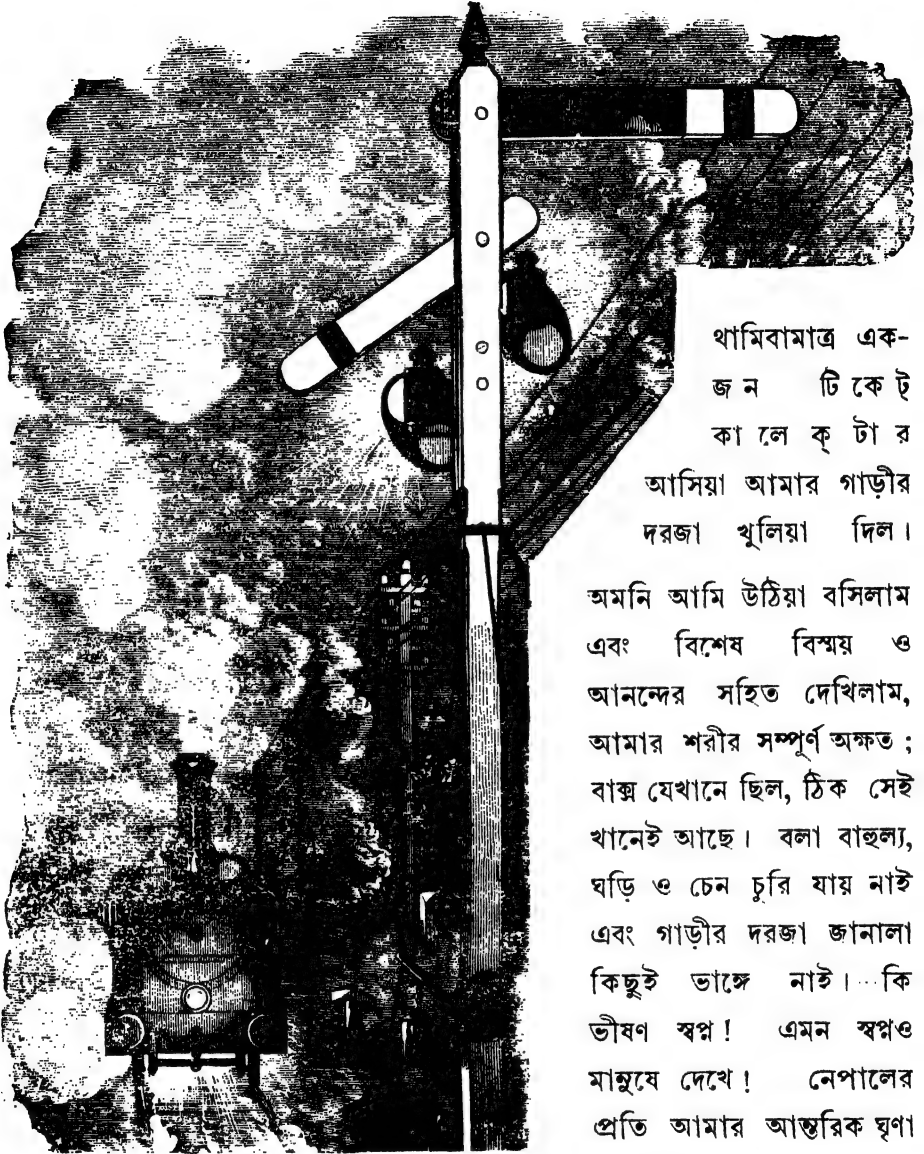 থামিবামাত্র এক-
জন টিকেট্
কালেক্টার
আসিয়া আমার গাড়ীর
দরজা খুলিয়া দিল।
অমনি আমি উঠিয়া বসিলাম
এবং বিশেষ বিস্ময় ও
আনন্দের সহিত দেখিলাম,
আমার শরীর সম্পূর্ণ অক্ষত;
বাক্স যেখানে ছিল, ঠিক সেই
খানেই আছে। বলা বাহুল্য,
ঘড়ি ও চেন চুরি যায় নাই
এবং গাড়ীর দরজা জানালা
কিছুই ভাঙ্গে নাই।...কি
ভীষণ স্বপ্ন! এমন স্বপ্নও
মানুষে দেখে! নেপালের
প্রতি আমার আন্তরিক ঘৃণা